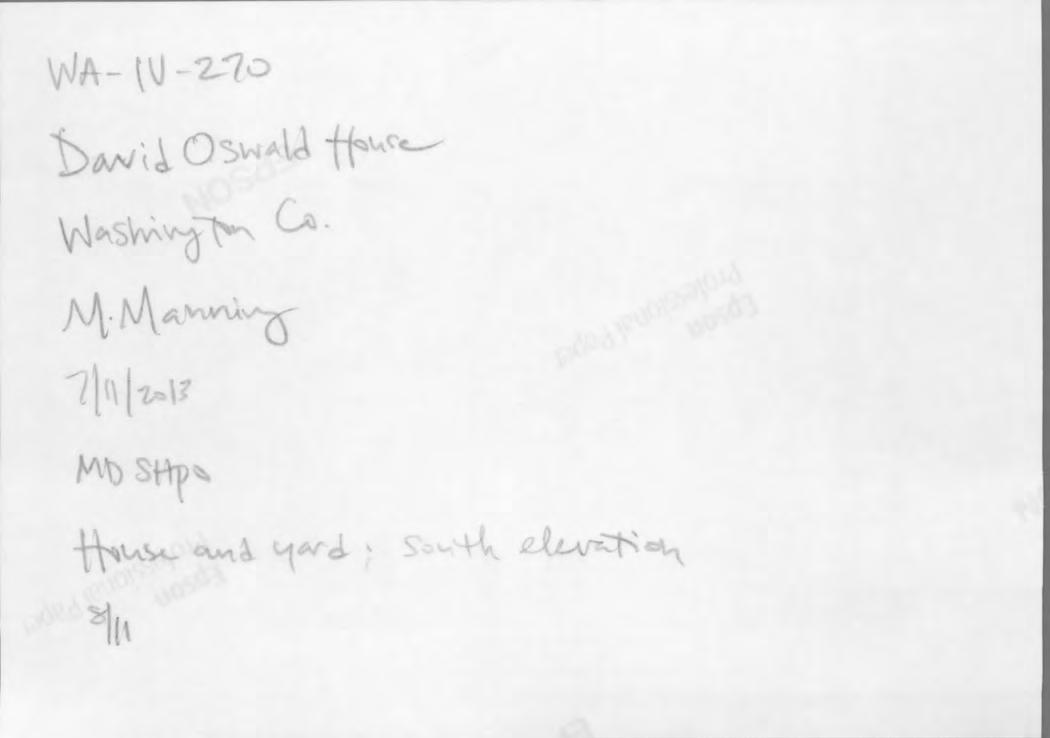 WA-IV-270
David Oswald House
Washington Co.
M. Manning
7/11/2013
MD SHPO
House and yard; south elevation
8/11
EPSON
Epson
Professional Paper
Epson
Professional Paper